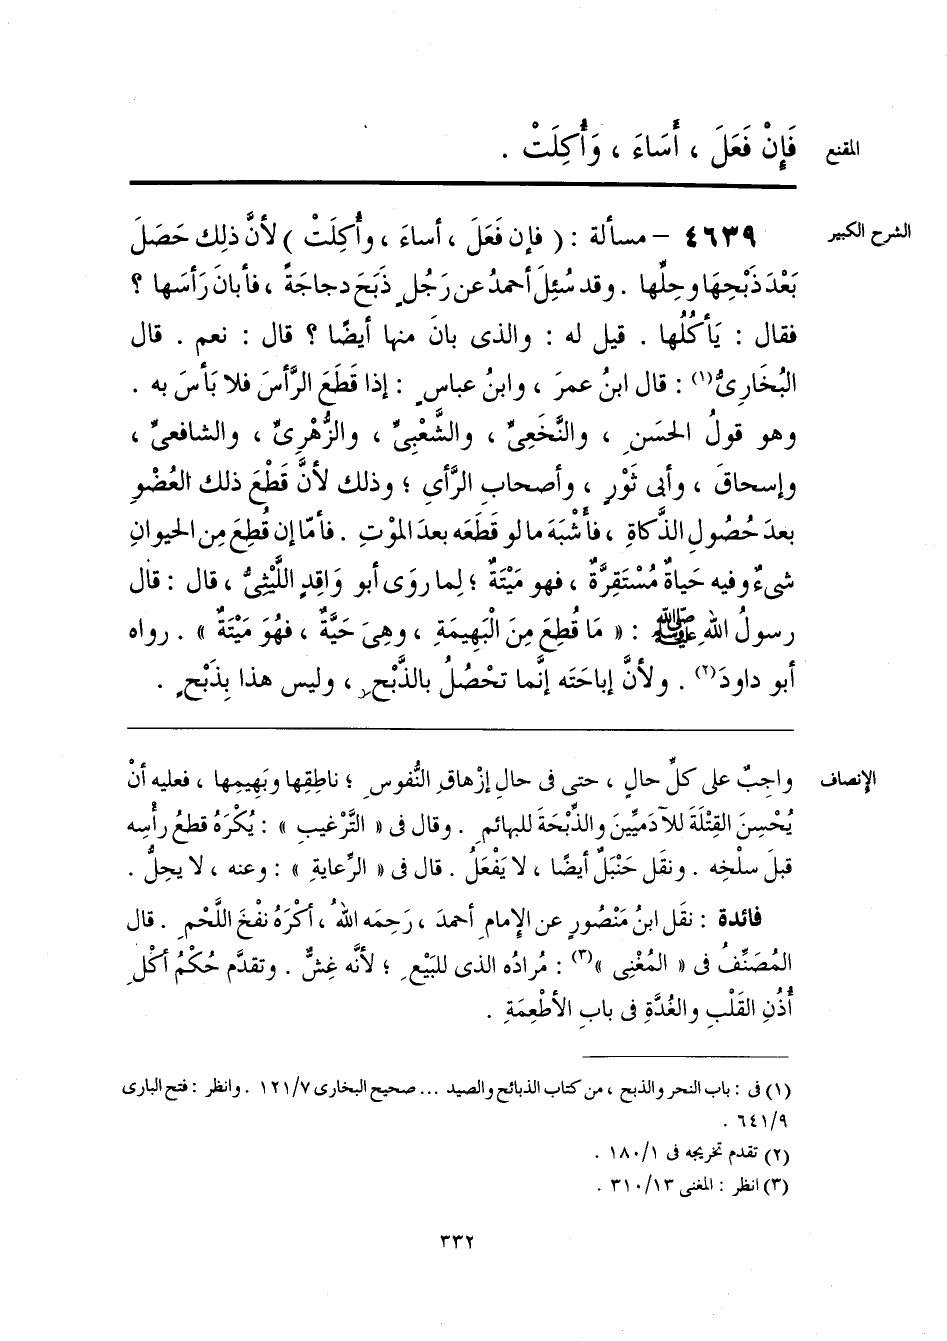 المقنع فَإِنْ فَعَلَ ، أَسَاءَ ، وَأُكِلَتْ .
الشرح الكبير ٤٦٣٩ – مسألة : ( فإن فَعَلَ ، أساءَ ، وأُكِلَتْ ) لأنَّ ذلك حَصَلَ
بَعْدَ ذَبْحِهَا وحِلِّها . وقد سُئِلَ أحمدُ عن رَجُلٍ ذَبَحَ دجاجَةً ، فأبانَ رَأسَها ؟
فقال : يَأكُلُها . قيل له : والذى بانَ منها أيضًا ؟ قال : نعم . قال
البُخَارِىُّ(١) : قال ابنُ عمرَ ، وابنُ عباسٍ : إذا قَطَعَ الرَّأسَ فلا بَأسَ به .
وهو قولُ الحسَنِ ، والنَّخَعِىِّ ، والشَّعْبِىِّ ، والزُّهْرِىِّ ، والشافعىِّ ،
وإسحاقَ ، وأبى ثَوْرٍ ، وأصحابِ الرَّأىِ ؛ وذلك لأنَّ قَطْعَ ذلك العُضْوِ
بعدَ حُصُولِ الذَّكاةِ ، فأَشْبَهَ ما لو قَطَعَه بعدَ الموْتِ . فأمّا إن قُطِعَ مِن الحيوانِ
شىءٌ وفيه حَياةٌ مُسْتَقِرَّةٌ ، فهو مَيْتَةٌ ؛ لِما روَى أبو وَاقِدٍ اللَّيْثِىُّ ، قال : قال
رسولُ اللهِ ﷺ : « مَا قُطِعَ مِنَ الْبَهِيمَةِ ، وهِىَ حَيَّةٌ ، فهُوَ مَيْتَةٌ » . رواه
أبو داودَ(٢) . ولأنَّ إباحَتَه إنَّما تحْصُلُ بالذَّبْحِ ، وليس هذا بِذَبْحٍ .
الإنصاف واجِبٌ على كلِّ حالٍ ، حتى فى حالِ إزْهاقِ النُّفوسِ ؛ ناطِقِها وبَهِيمِها ، فعليه أنْ
يُحْسِنَ القِتْلَةَ للآدَمِيِّين والذِّبْحَةَ للبهائمِ . وقال فى « التَّرْغيبِ » : يُكْرَهُ قطعُ رأْسِه
قبلَ سلْخِه . ونقَل حَنْبَلٌ أيضًا ، لا يَفْعَلُ . قال فى « الرِّعايةِ » : وعنه ، لا يحِلُّ .
فائدة : نقَل ابنُ مَنْصُورٍ عن الإمامِ أحمدَ ، رَحِمَه اللهُ ، أكْرَهُ نفْخَ اللَّحْمِ . قال
المُصَنِّفُ فى « المُغْنِى »(٣) : مُرادُه الذى للبَيْعِ ؛ لأنَّه غِشٌّ . وتقدَّم حُكْمُ أكْلِ
أُذُنِ القَلْبِ والغُدَّةِ فى بابِ الأطْعِمَةِ .
(١) فى : باب النحر والذبح ، من كتاب الذبائح والصيد ... صحيح البخارى ١٢١/٧ . وانظر : فتح البارى
٦٤١/٩ .
(٢) تقدم تخريجه فى ١٨٠/١ .
(٣) انظر : المغنى ٣١٠/١٣ .
٣٣٢